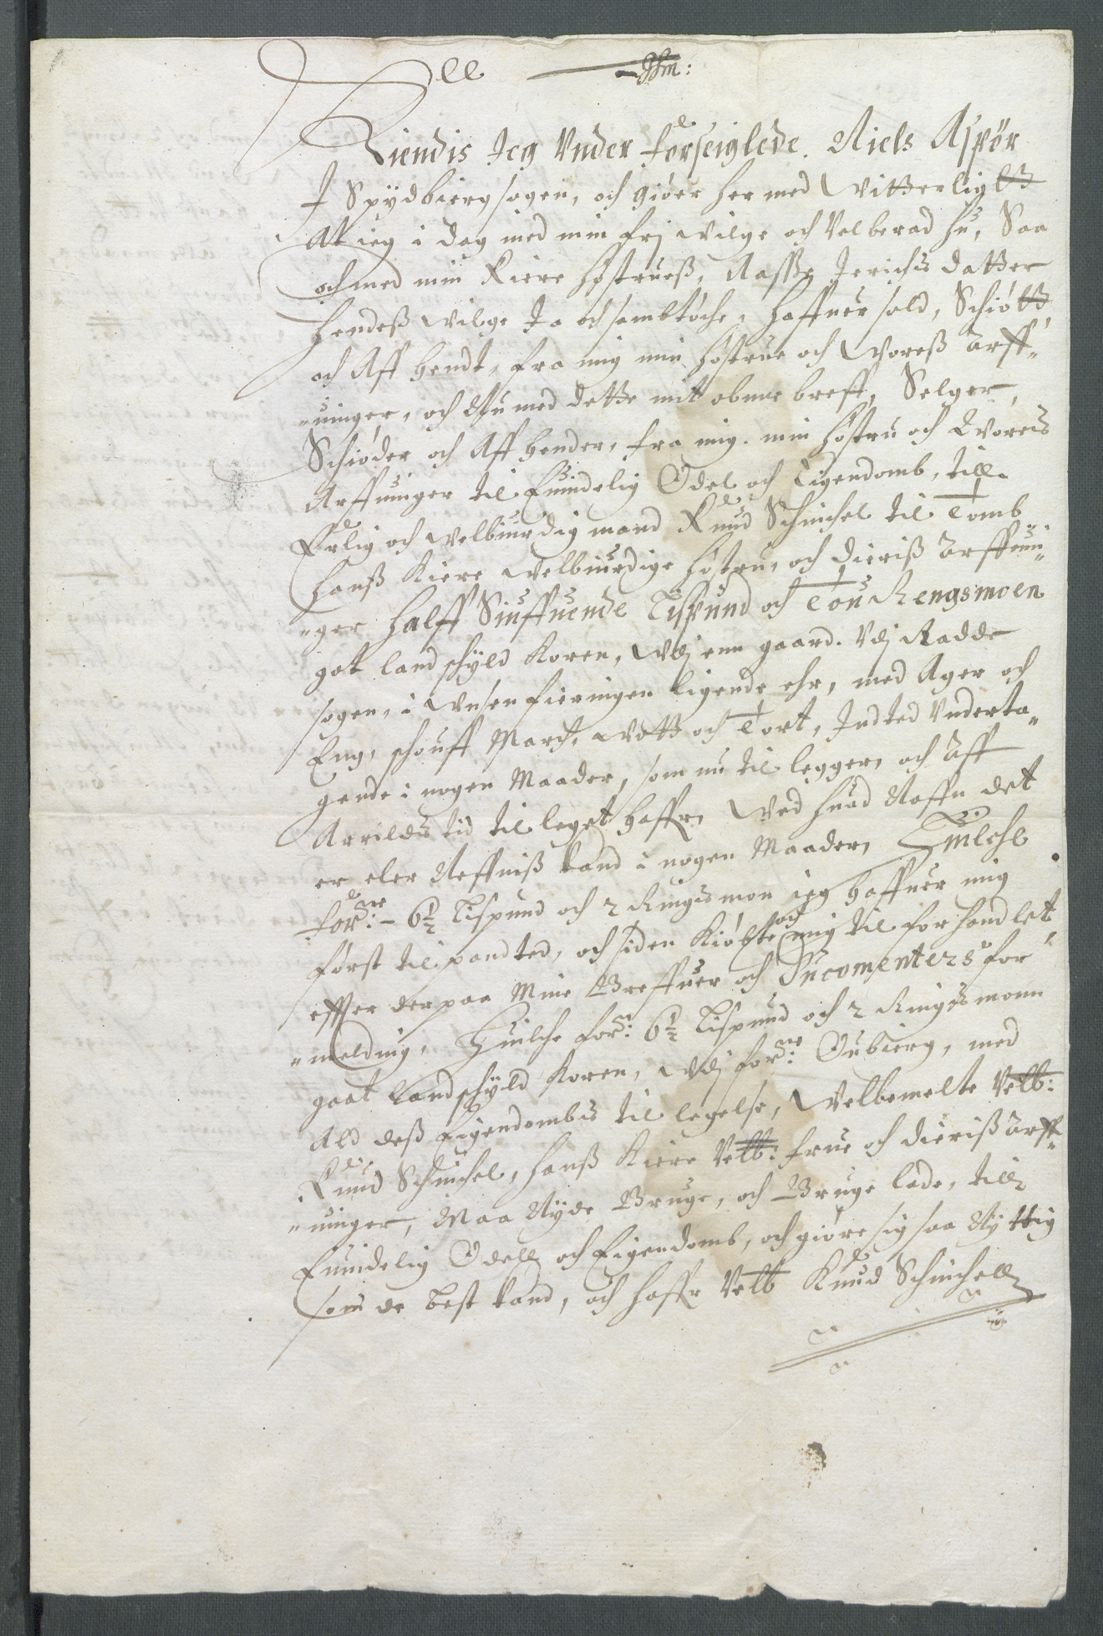 Kiendis Jeg Vnder forseiglede. Niels Aspør
J Spydbierg sogen, och giører her med Witterligtt
At ieg i dag med min frj Wilge och Velberad hu, Saa
och med min Kiere høstrueß, Aasße Jerichis datter
hendeß Wilge Ja och samtøche, haffuer sold, Schiøtt,
och Aff hendt, fra mig min høstrue och Woreß Arff¬
uinger, och Nu med dette mit obne breff, Selger,
Schiøder och Aff hender, fra mig. min høstru och Voreis
Arffuinger til Euindelig Odel och Eigendomb, till
Erlig och Welbiurdig mand Knud Schinchel til Tomb
hanß Kiere Welbiurdige høstru, och dieriß Arffuin¬
ger halff Siuffuende Lispund och Tou Rengsmoen
got landschyld Koren, Vdj enn gaard. Vdj Radde
sogen, i Wnsen fieringen ligende ehr, med Ager och
Eng, schouff March, Wott och Tort, Indted Vnderta¬
gende i nogen Maader, som nu til legger, och Aff
Arrildtz tid til leget haffr, Wed huad Naffn det
er eler Neffniß kand i nogen Maader, Huilche
forne: 6½ Lispund och 2 Ringismon ieg haffuer mig
først til pandted, och siden Kiøbte och mig til forhandlet,
effter derpaa Mine Breffuer och Documenters for
melding, Huilche forne: 6½ Lispund och 2 Ringismonn
gaat Landschyld Koren, Vdj forne: Oubierg, med
Ald deß Eigendombis til legelse, Velbemelte Velb:
Knud Schinchel, hanß Kiere Velb: frue och dieriß Arff¬
uinger, Maa Nyde Bruge, och Bruge lade, till
Euindelig Odell och Eigendomb, och giøre sig saa Nyttig
som de best kand, och haffr Velb Knud Schinchell